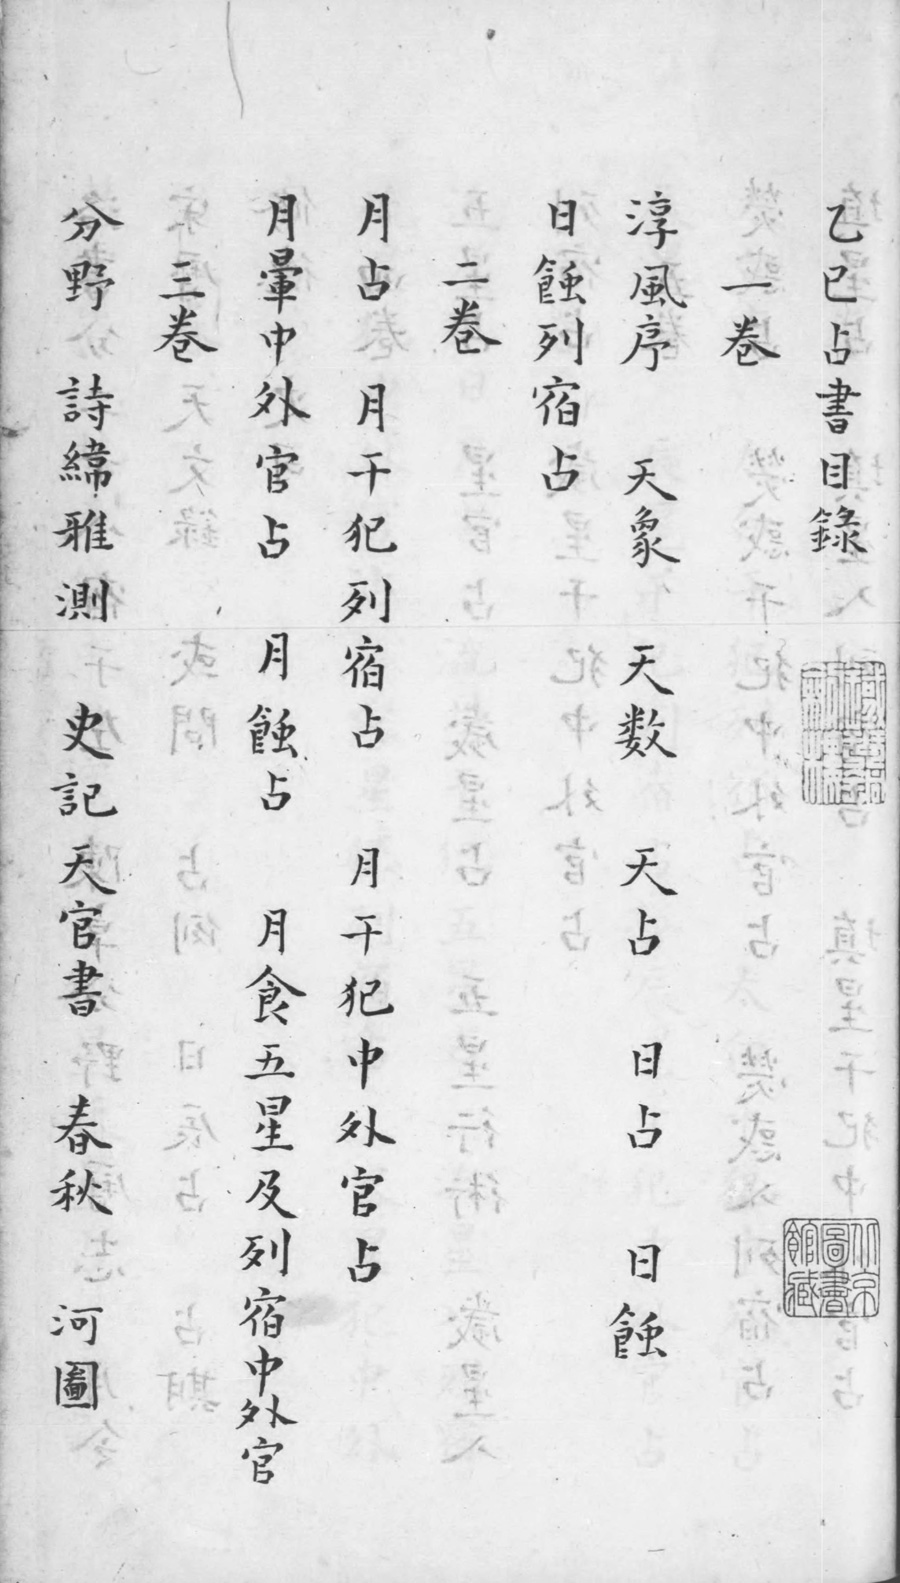 乙巳占書目錄
一卷
淳風序 天象 天数 天占 日占 日蝕
日蝕列宿占
二卷
月占 月干犯列宿占 月干犯中外官占
月暈中外官占 月蝕占 月食五星及列宿中外官
三卷
分野 詩緯雅測 史記天官書 春秋 河圖
北京圖書館藏